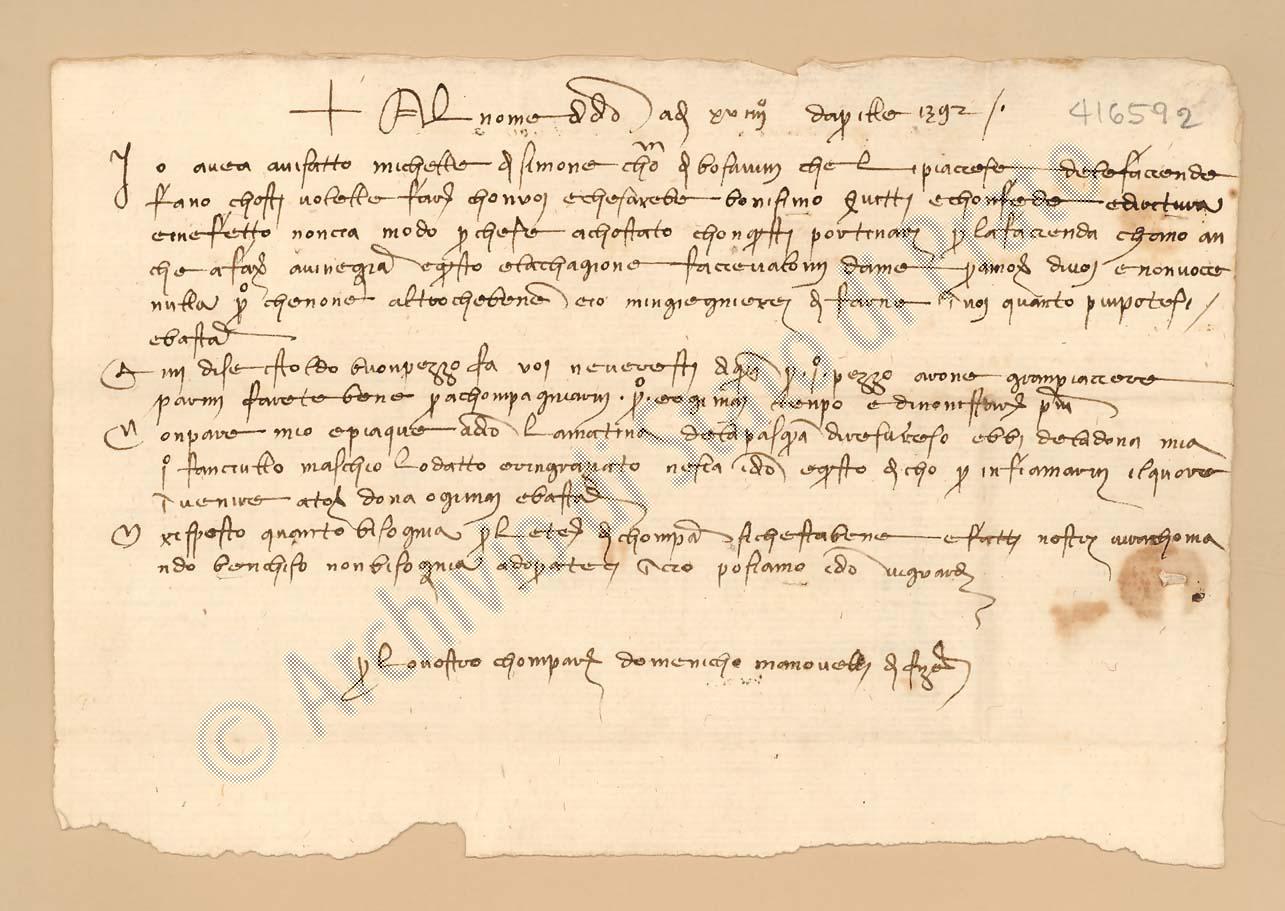 Al nome di dio adi xviiii° daprille 1392
416592
Io avea avisatto michelle di simone chō di bosavini che l piacrese delefaciende
fano chosti volelle fare chonvoi echesarebe bonisimo per tutti echonfede edirittura
einefetto noncia modo perchese achostato chonquesti portinari per lafacienda chano an
che afare avinegia equesto elachagione faciewalovi dame peramore divoi enonvoce
nulla però chenone altrochebene eio mingiegnierei di farne i voi quanto piupotesi
ebasta
mi dise stoldo buonpezzo fa voi neveresti di qua per i° pezzo arone granpiacere
parmi farete bene perachompagniarvi però eogimai tenpo edinonistare
Conpare mio epiaque adio lamatina delapasqua diresureso ebbi deladona mia
i° fanciullo maschio lodatto eringraziato nesia idio equesto dicho per infiamarvi ilquore
i venire atore dona ogimai ebasta
rispostto quanto bisognia per letere di chompa sichestabene efatti nostri viracchoma
ndo benchiso nonbisognia adoperateci i cio posiamo idio viguardi
per lovostro chompare domenicho manovelli di firenze
© Archivio di Stato di Prato